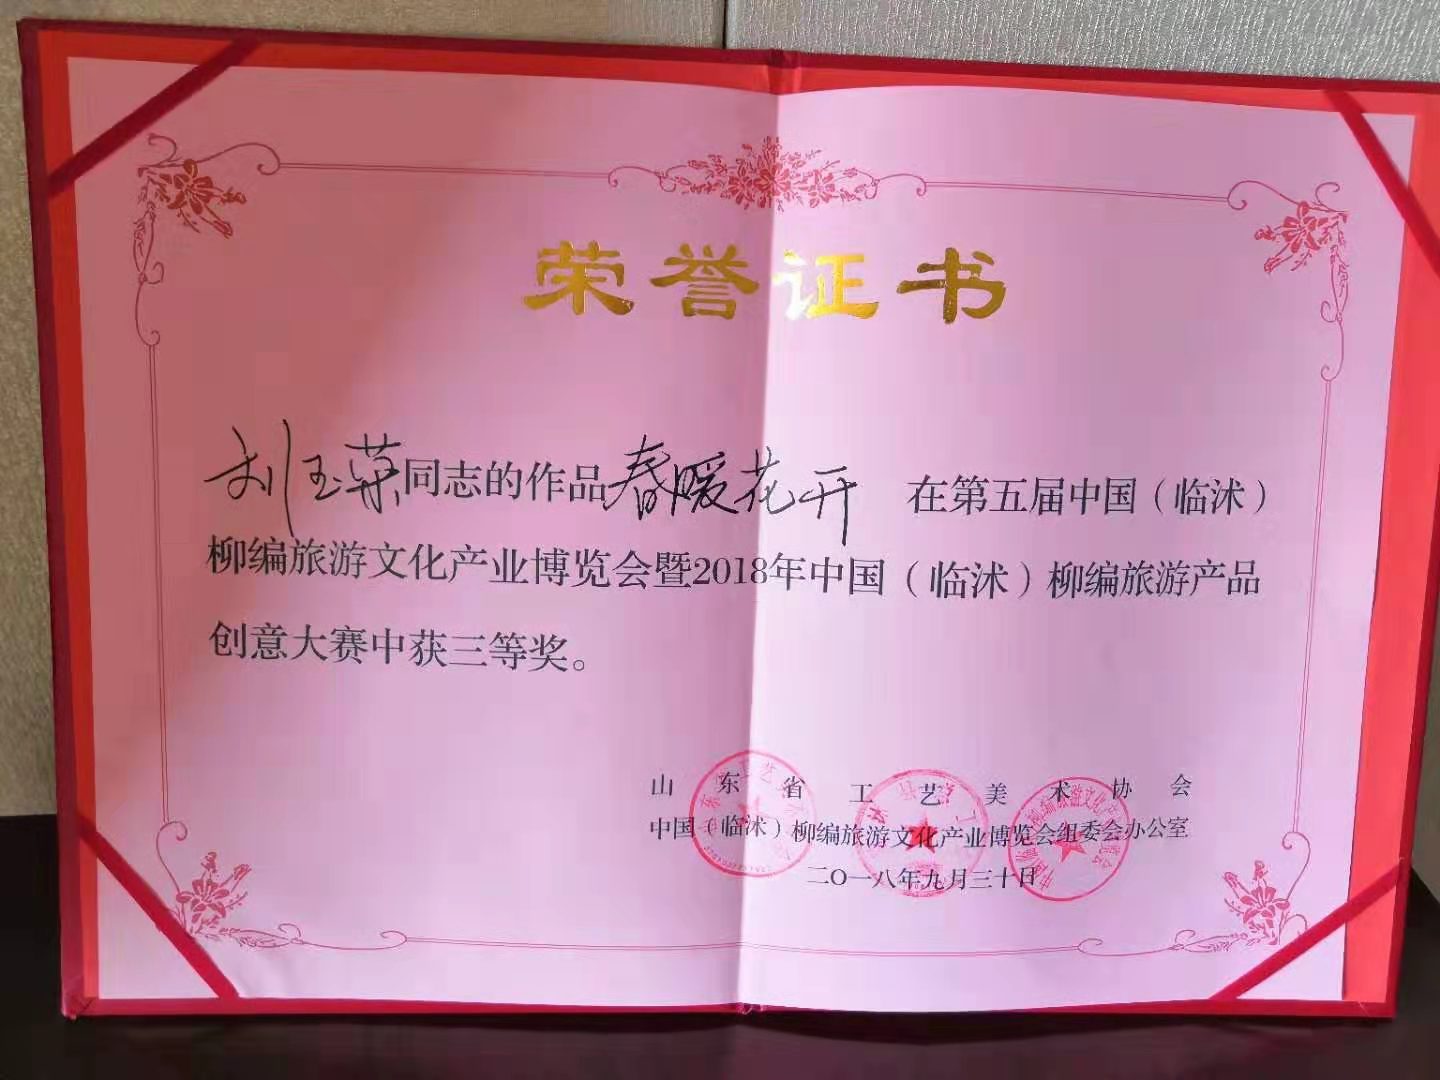 荣誉证书
刘玉荣同志的作品春暖花开 在第五届中国（临沭）
柳编旅游文化产业博览会暨2018年中国（临沭）柳编旅游产品
创意大赛中获三等奖。
山东省工艺美术协会
中国（临沭）柳编旅游文化产业博览会组委会办公室
二〇一八年九月三十日